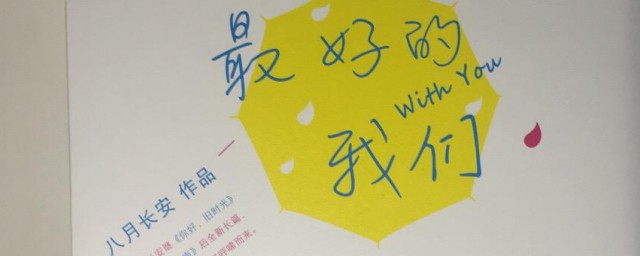 最好的
With You
我们
八月长安 作品
安继《你好,旧时光》
后全新长篇,
呼啸而来。